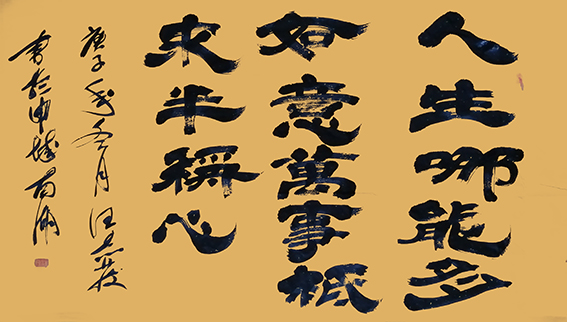 人生哪能多
如意萬事祇
求半稱心
庚子年冬月汪
書於申城南